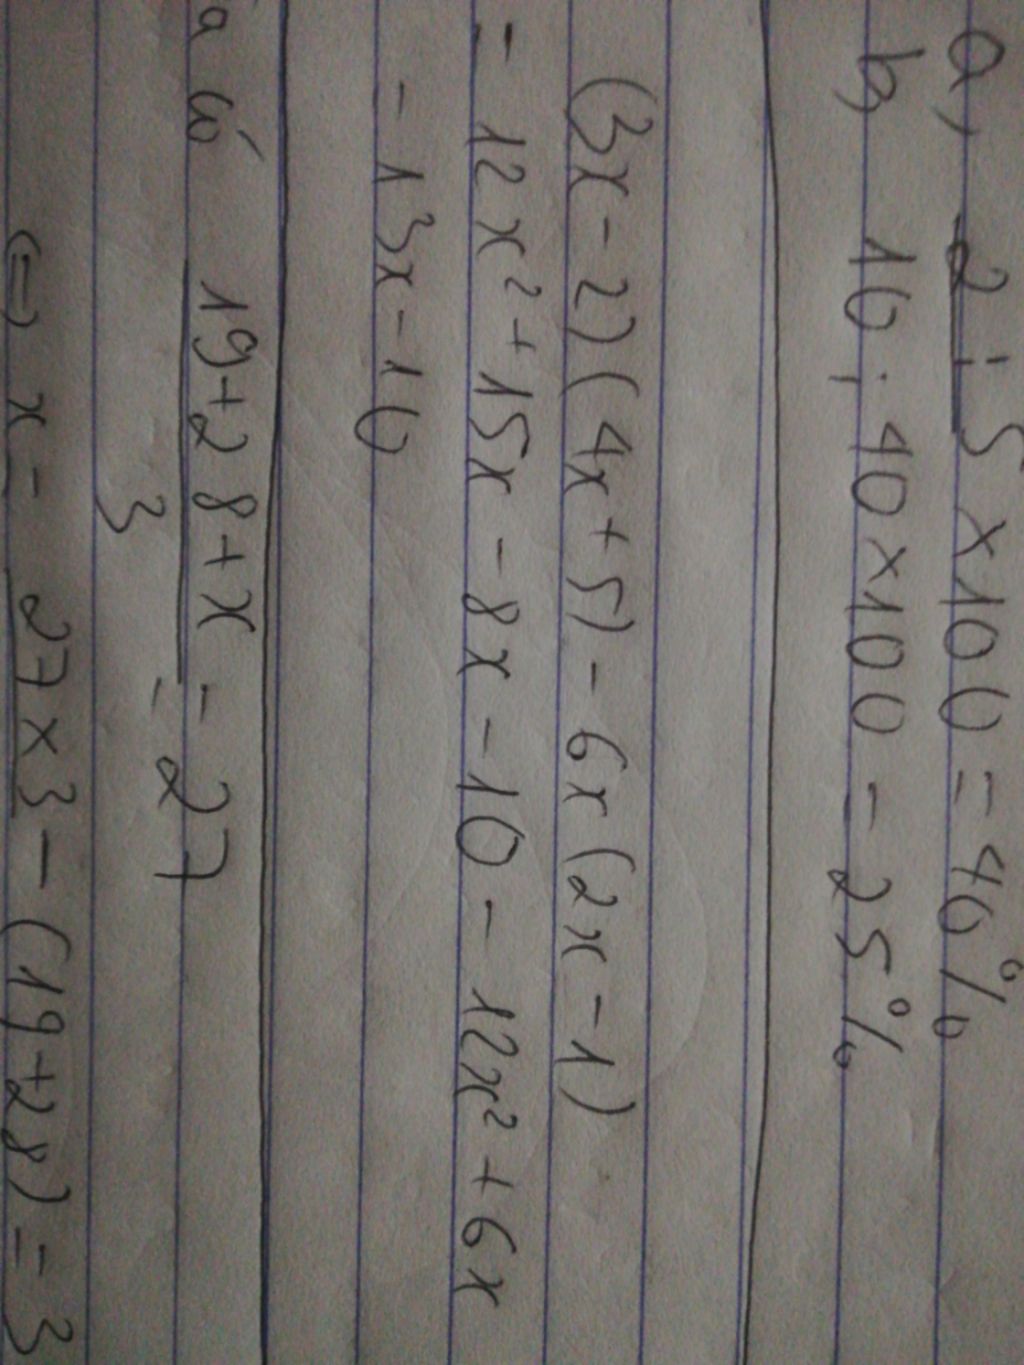 a, 2 : 5 x 100 = 40%
b, 10 : 40 x 100 = 25%
(3x - 2)(4x + 5) - 6x(2x - 1)
= 12x² + 15x - 8x - 10 - 12x² + 6x
= 13x - 10
có 19 + 28 + x = 27
3
⇔ x = 27 x 3 - (19 + 28) = 3